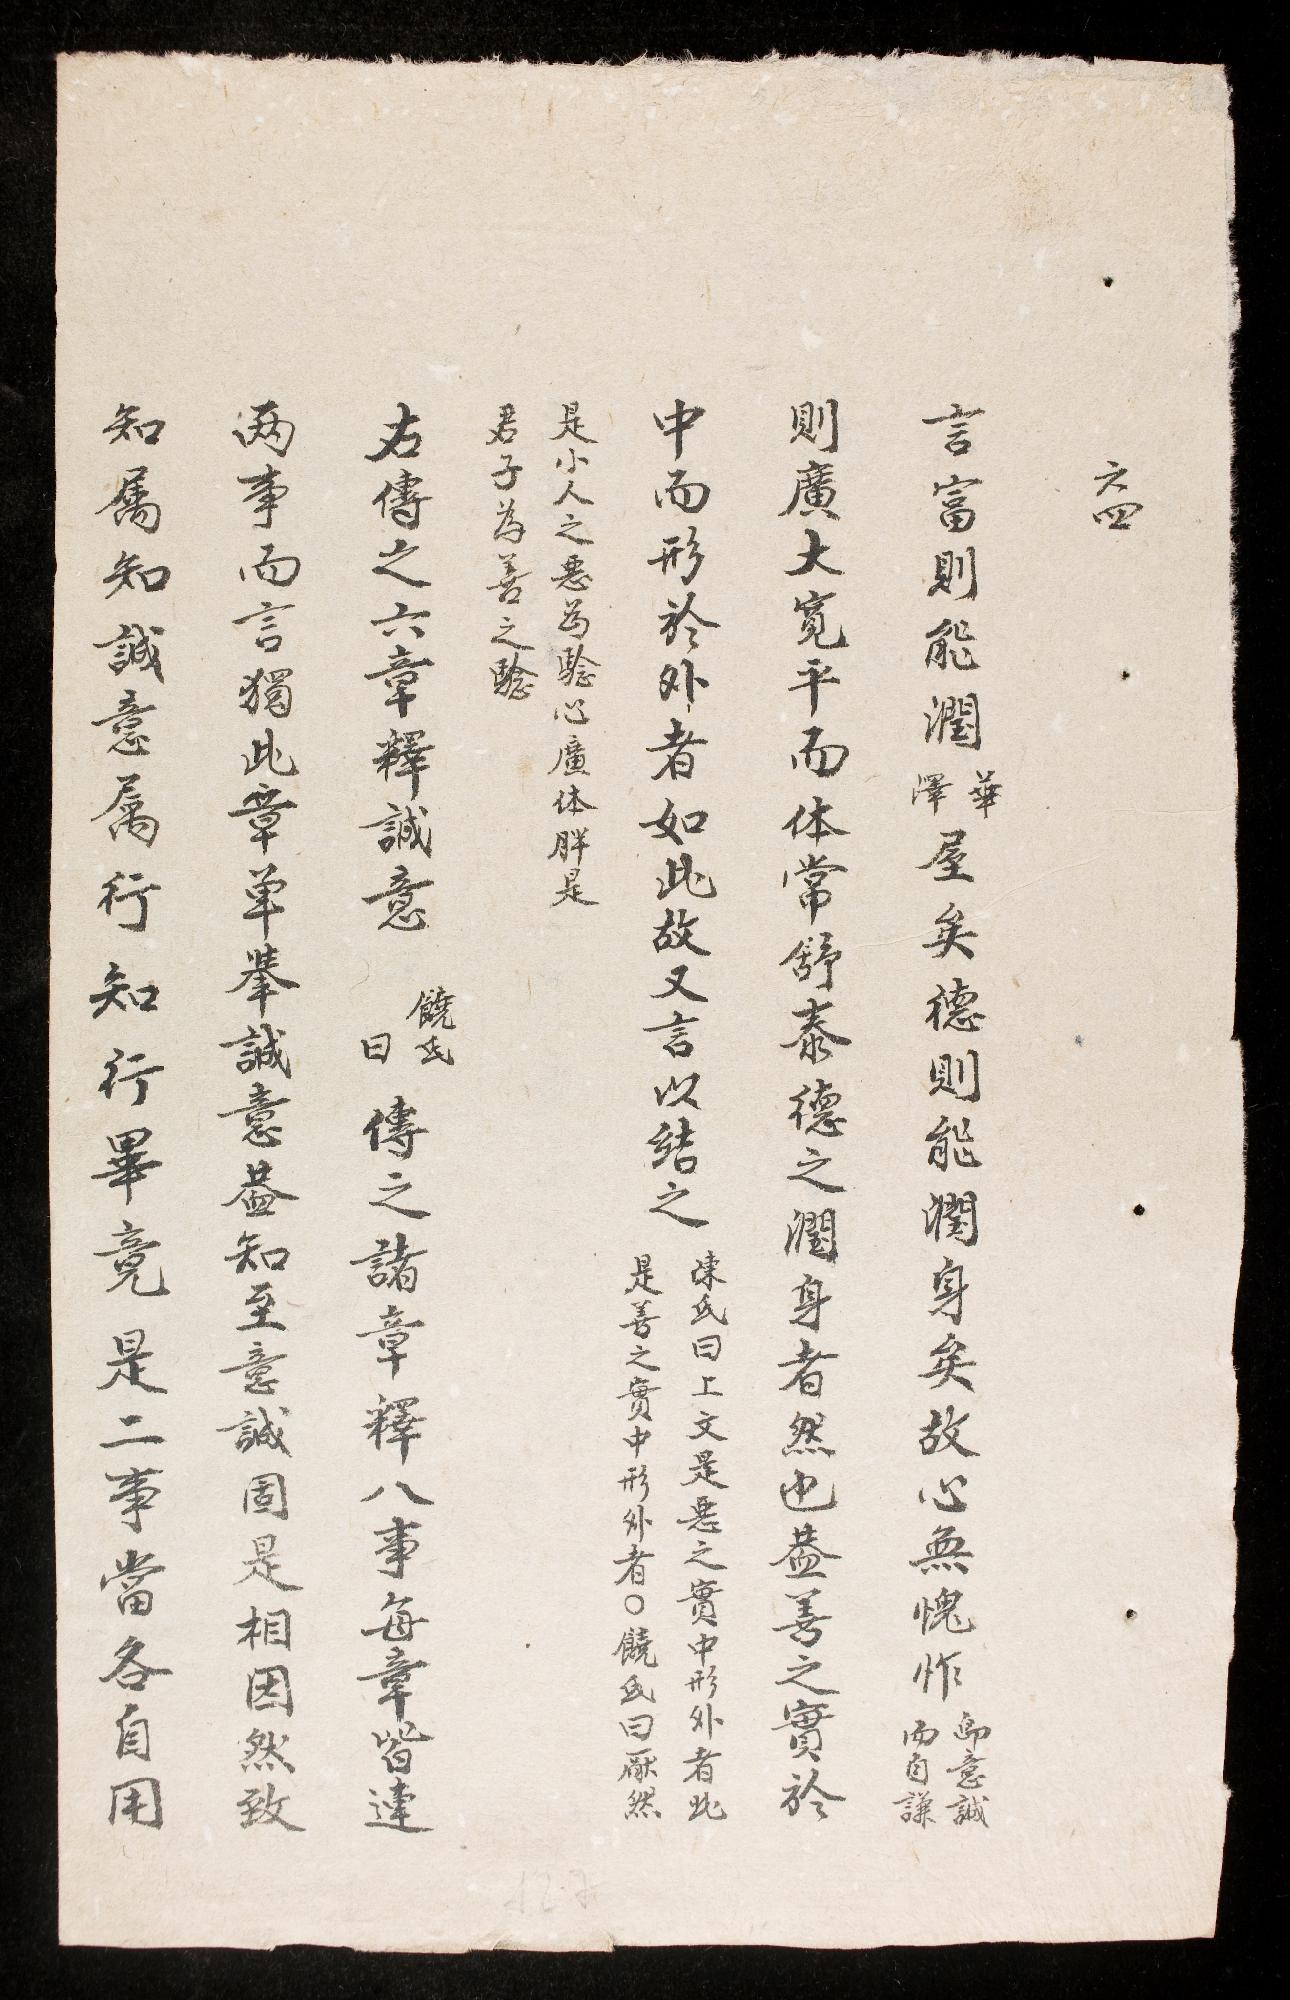 六四
言富則能潤華澤屋矣德則能潤身矣故心無愧怍即意誠而自謙
則廣大寬平而体常舒泰德之潤身者然也葢善之實於
中而形於外者如此故又言以結之陳氏曰上文是惡之實中形外者此是善之實中形外者〇饒氏曰厭然
是小人之惡為騐心廣体胖是
君子為善之騐
右傳之六章釋誠意饒氏曰傳之諸章釋八事每章皆連
两事而言獨此章单舉誠意葢知至意誠固是相因然致
知属知誠意属行知行畢竟是二事當各自用